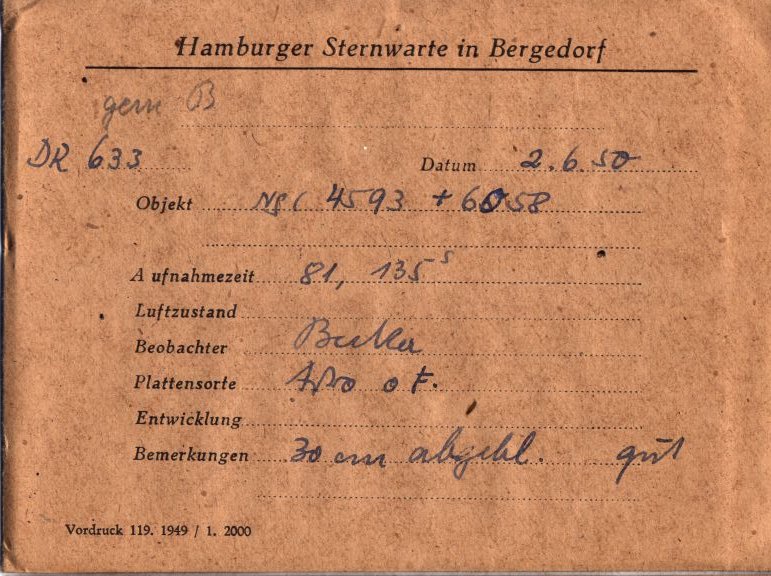 Hamburger Sternwarte in Bergedorf
gem B
DR 633 Datum 2.6.50
Objekt NGC 4593 + 6058
Aufnahmezeit 81, 135 s
Luftzustand
Beobachter
Plattensorte Astro o F.
Entwicklung
Bemerkungen 30 cm abgebl. gut
Vordruck 119. 1949 / 1. 2000